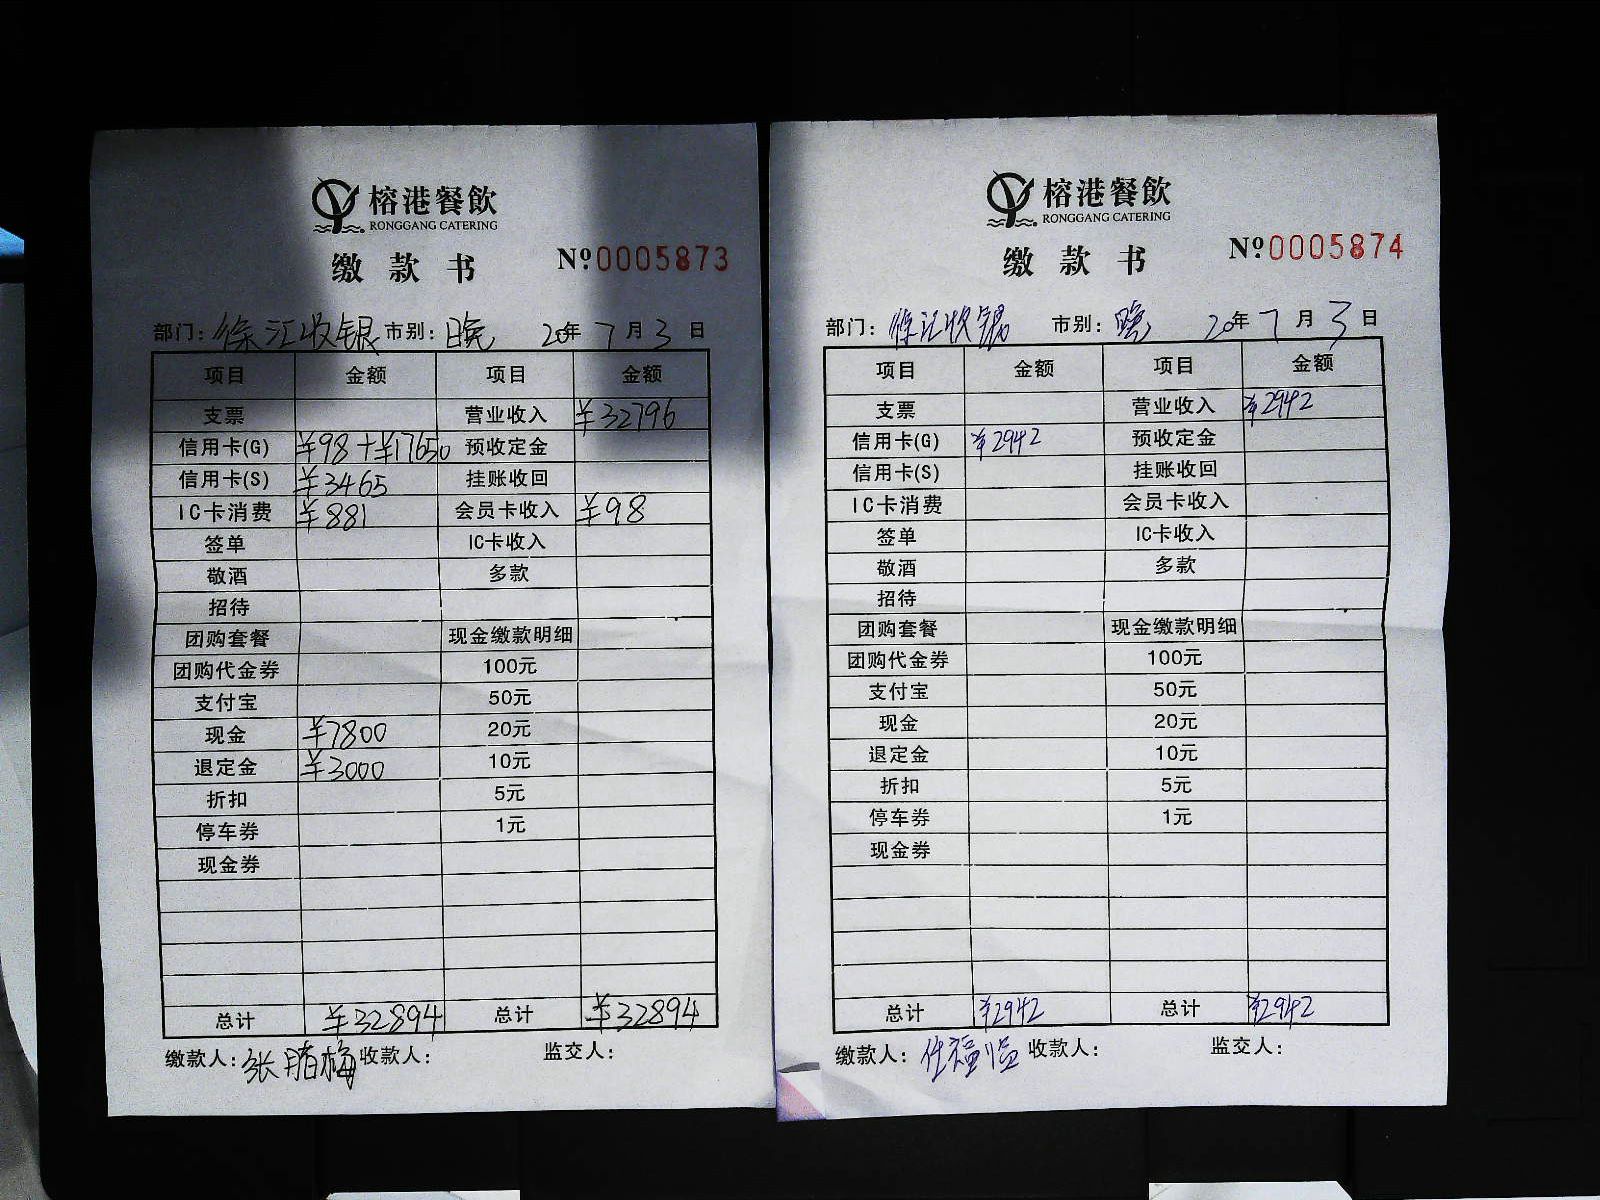 榕港餐飲
RONGGANG CATERING
缴款书 Nº0005873
部门：徐汇收银 市别：晚 20年7月3日
项目 金额 项目 金额
支票 营业收入 ¥32796
信用卡(G) ¥98+¥17650 预收定金
信用卡(S) ¥3465 挂账收回
IC卡消费 ¥881 会员卡收入 ¥98
签单 IC卡收入
敬酒 多款
招待
团购套餐 现金缴款明细
团购代金券 100元
支付宝 50元
现金 ¥7800 20元
退定金 ¥3000 10元
折扣 5元
停车券 1元
现金券
总计 ¥32894 总计 ¥32894
缴款人：张腊梅 收款人： 监交人：
榕港餐飲
RONGGANG CATERING
缴款书 Nº0005874
部门：徐汇收银 市别：晚 20年7月3日
项目 金额 项目 金额
支票 营业收入 ¥2942
信用卡(G) ¥2942 预收定金
信用卡(S) 挂账收回
IC卡消费 会员卡收入
签单 IC卡收入
敬酒 多款
招待
团购套餐 现金缴款明细
团购代金券 100元
支付宝 50元
现金 20元
退定金 10元
折扣 5元
停车券 1元
现金券
总计 ¥2942 总计 ¥2942
缴款人： 收款人： 监交人：